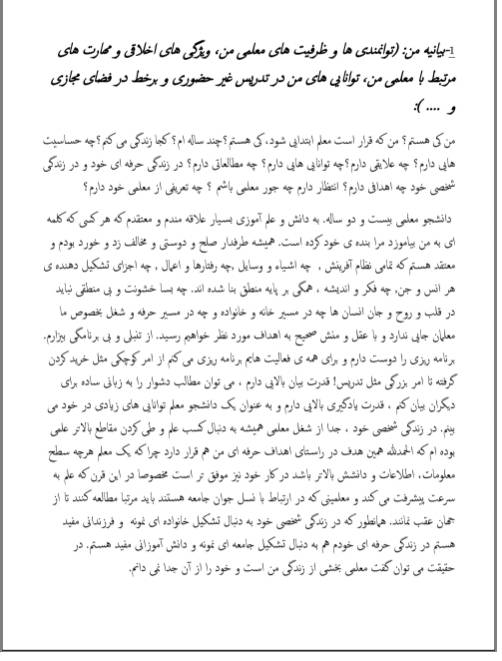 1-بیانیه من: (توانمندی ها و ظرفیت های معلمی من، ویژگی های اخلاقی و مهارت های
مرتبط با معلمی من، توانایی های من در تدریس غیر حضوری و برخط در فضای مجازی
و .... ):
من کی هستم؟ من که قرار است معلم ابتدایی شود، کی هستم؟چند ساله ام؟ کجا زندگی می کنم؟چه حساسیت
هایی دارم؟ چه علایقی دارم؟چه توانایی هایی دارم؟ چه مطالعاتی دارم؟ در زندگی حرفه ای خود و در زندگی
شخصی خود چه اهدافی دارم؟ انتظار دارم چه جور معلمی باشم ؟ چه تعریفی از معلمی خود دارم؟
دانشجو معلمی بیست و دو ساله. به دانش و علم آموزی بسیار علاقه مندم و معتقدم که هر کسی که کلمه
ای به من بیاموزد مرا بنده ی خود کرده است. همیشه طرفدار صلح و دوستی و مخالف زد و خورد بودم و
معتقد هستم که تمامی نظام آفرینش ، چه اشیاء و وسایل ،چه رفتارها و اعمال ، چه اجزای تشکیل دهنده ی
هر انس و جن، چه فکر و اندیشه ، همگی بر پایه منطق بنا شده اند. چه بسا خشونت و بی منطقی نباید
در قلب و روح و جان انسان ها چه در مسیر خانه و خانواده و چه در مسیر حرفه و شغل بخصوص ما
معلمان جایی ندارد و با عقل و منش صحیح به اهداف مورد نظر خواهیم رسید. از تنبلی و بی برنامگی بیزارم.
برنامه ریزی را دوست دارم و برای همه ی فعالیت هایم برنامه ریزی می کنم از امر کوچکی مثل خرید کردن
گرفته تا امر بزرگی مثل تدریس! قدرت بیان بالایی دارم ، می توان مطالب دشوار را به زبانی ساده برای
دیگران بیان کنم ، قدرت یادگیری بالایی دارم و به عنوان یک دانشجو معلم توانایی های زیادی در خود می
بینم. در زندگی شخصی خود ، جدا از شغل معلمی همیشه به دنبال کسب علم و طی کردن مقاطع بالاتر علمی
بوده ام که الحمدلله همین هدف در راستای اهداف حرفه ای من هم قرار دارد چرا که یک معلم هرچه سطح
معلومات، اطلاعات و دانشش بالاتر باشد در کار خود نیز موفق تر است مخصوصا در این قرن که علم به
سرعت پیشرفت می کند و معلمینی که در ارتباط با نسل جوان جامعه هستند باید مرتبا مطالعه کنند تا از
جهان عقب نمانند. همانطور که در زندگی شخصی خود به دنبال تشکیل خانواده ای نمونه و فرزندانی مفید
هستم در زندگی حرفه ای خودم هم به دنبال تشکیل جامعه ای نمونه و دانش آموزانی مفید هستم. در
حقیقت می توان گفت معلمی بخشی از زندگی من است و خود را از آن جدا نمی دانم.